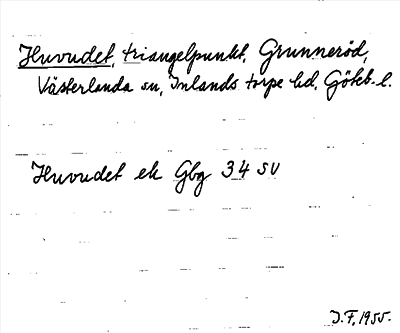 Huvudet, triangelpunkt, Grunneröd,
Västerlanda sn, Inlands torpe hd, Göteb. l.
Huvudet ek Gbg 34 SV
I. F. 1955.